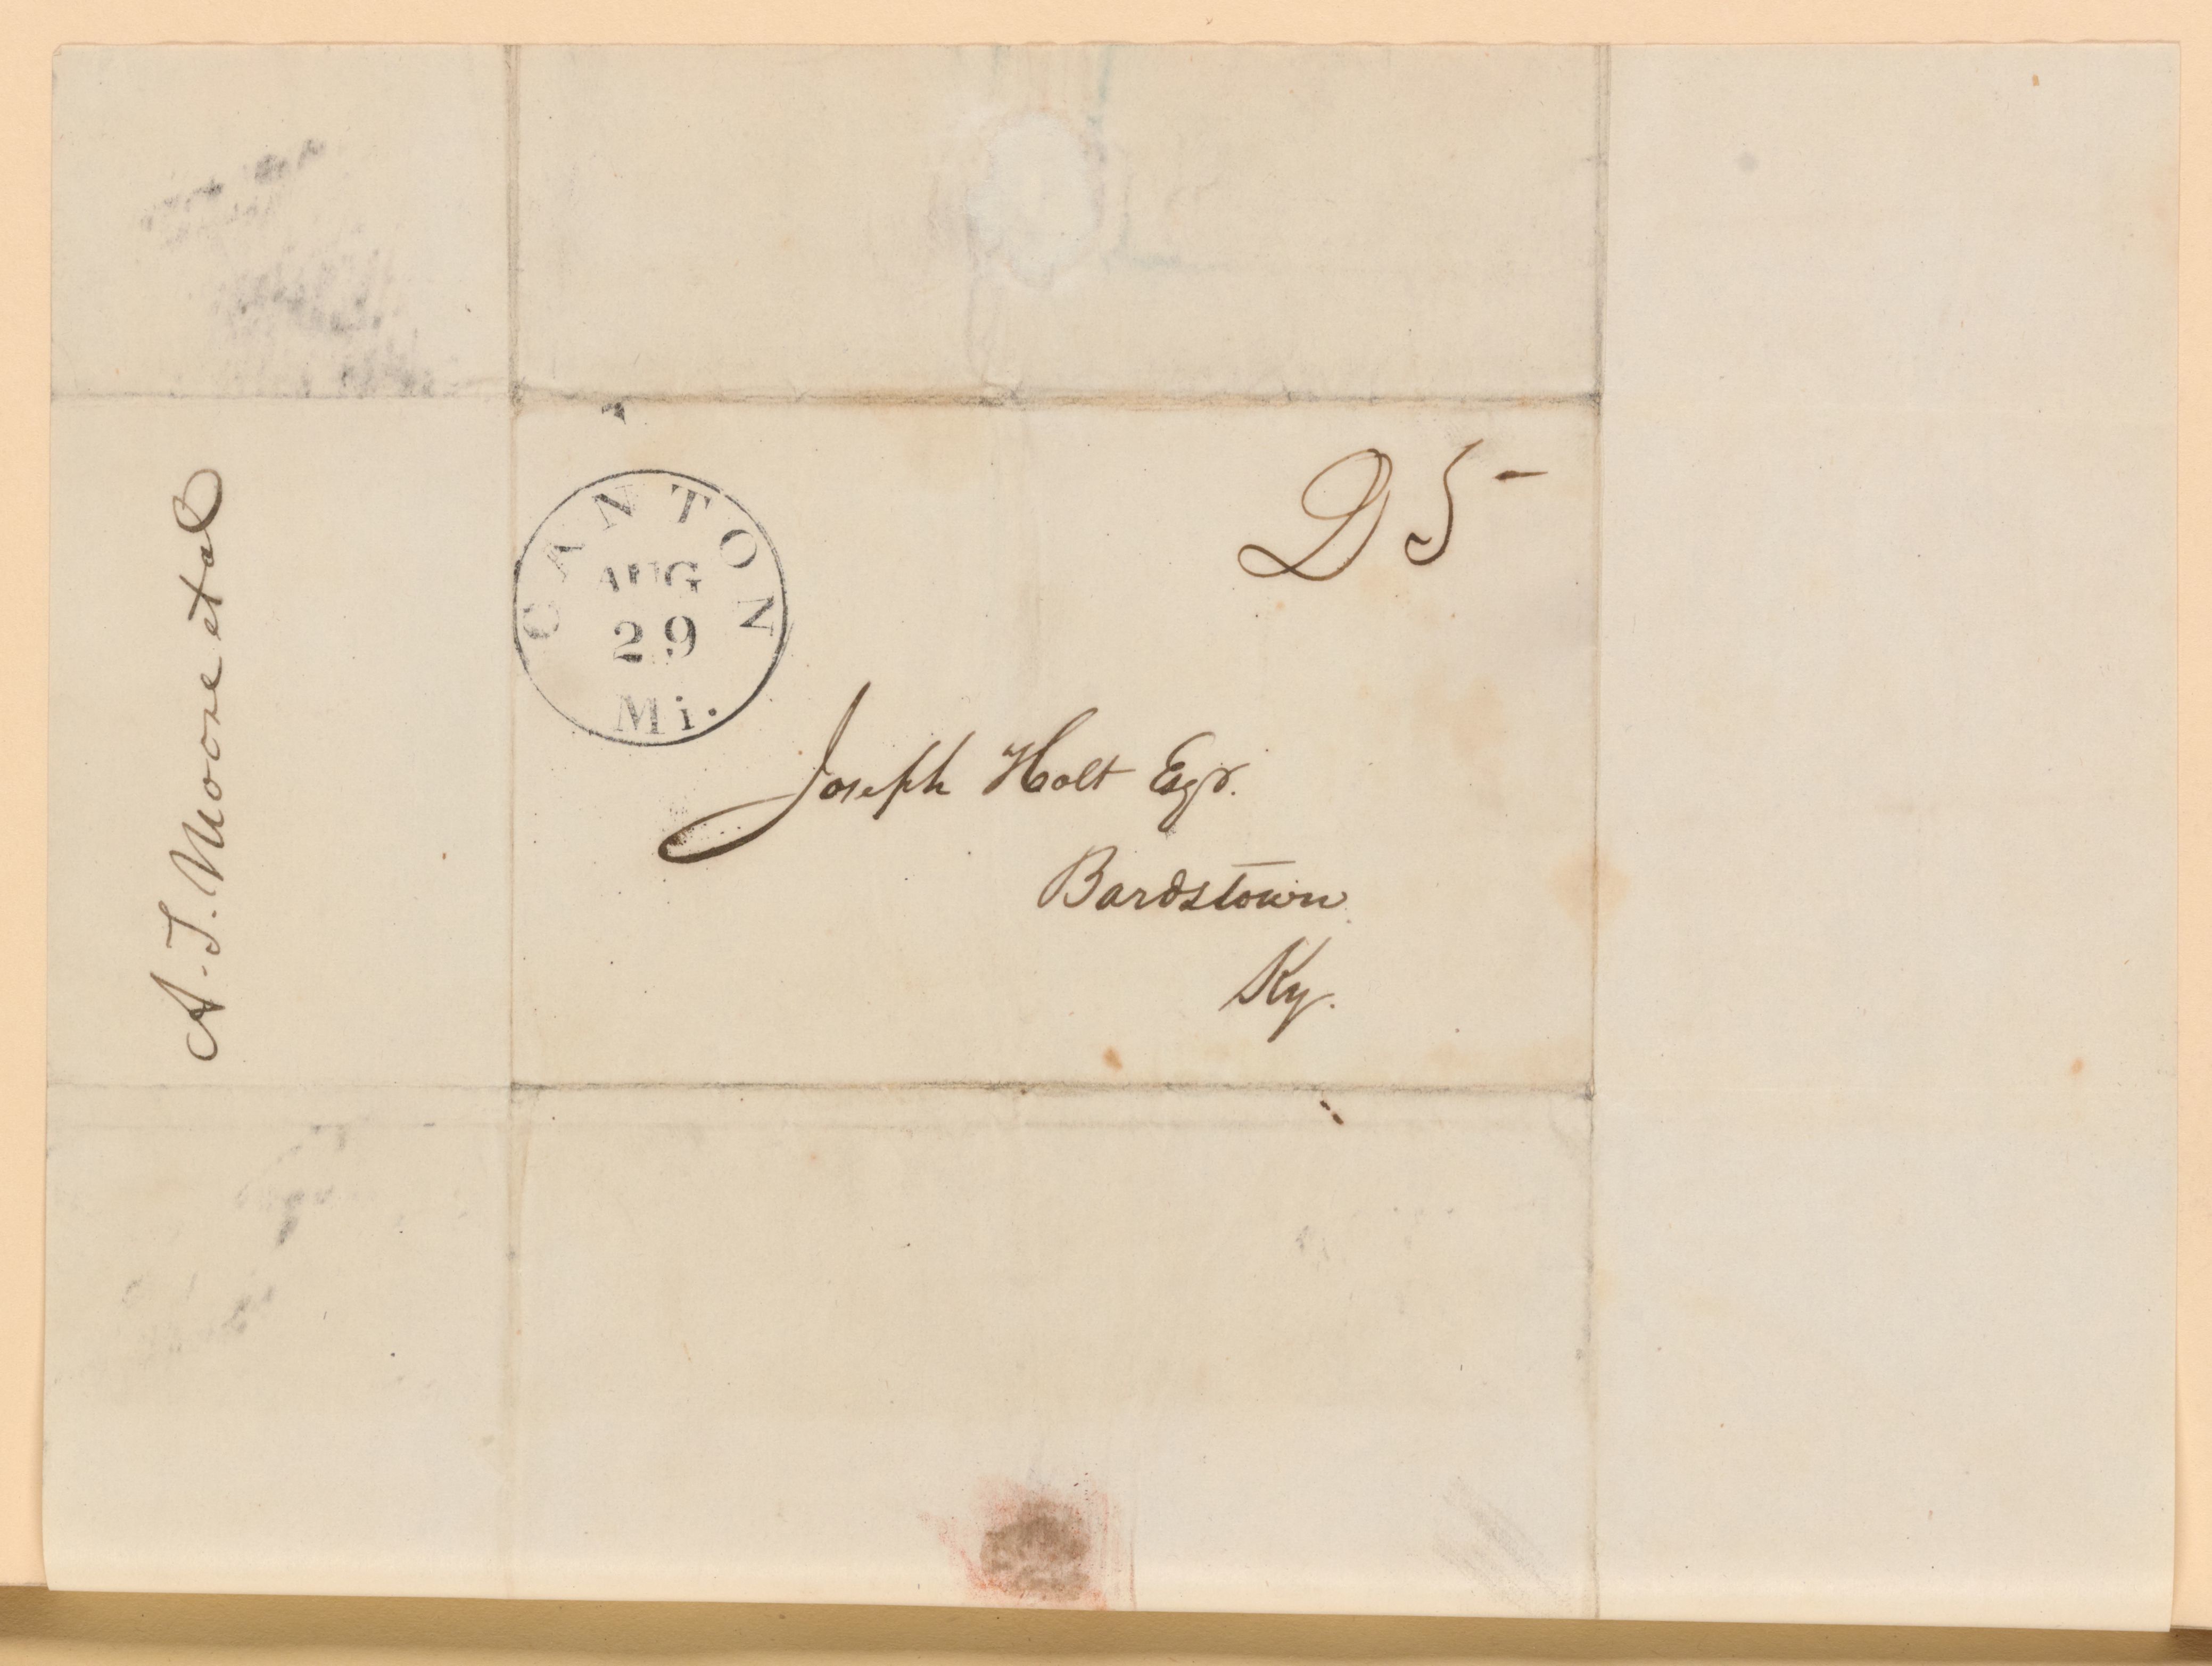 A. J. Moore et al
CANTON
AUG
29
Mi.
D 5 -
Joseph Holt Esqr.
Bardstown
Ky.